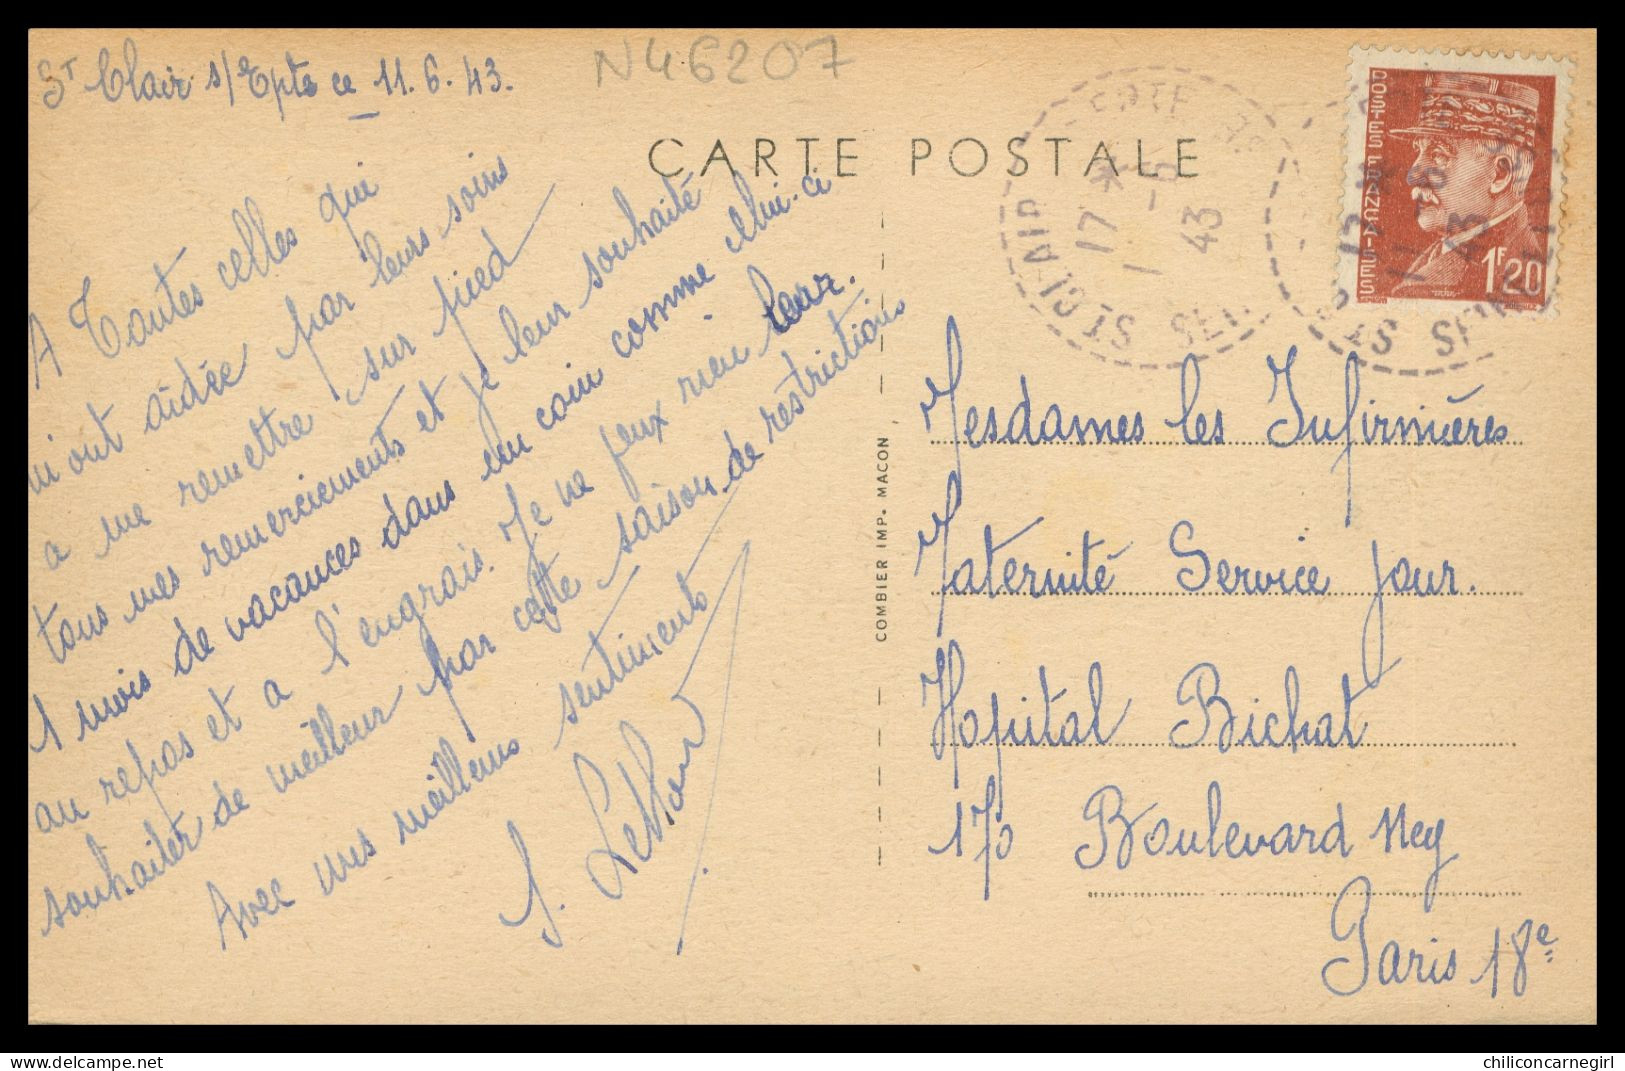 St Clair s/Epte ce 11.6.43.
N46207
CARTE POSTALE
A toutes celles qui
m'ont aidée par leurs soins
a me remettre sur pied
tous mes remerciements et je leur souhaite
1 mois de vacances dans un coin comme celui-ci
au repos et a l'engrais. Je ne peux rien leur
souhaiter de meilleur par cette saison de restrictions
Avec mes meilleurs sentiments
COMBIER IMP. MACON
17 *
1 -6
43
ST CLAIR
EPTE
POSTES FRANÇAISES
1F20
17
43
Mesdames les Infirmières
Maternité Service jour.
Hopital Bichat
170 Boulevard Ney
Paris 18e
delcampe.net
chiliconcarnegirl